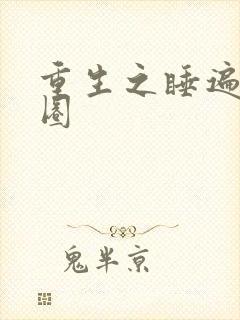 重生之睡遍
圈
鬼半京